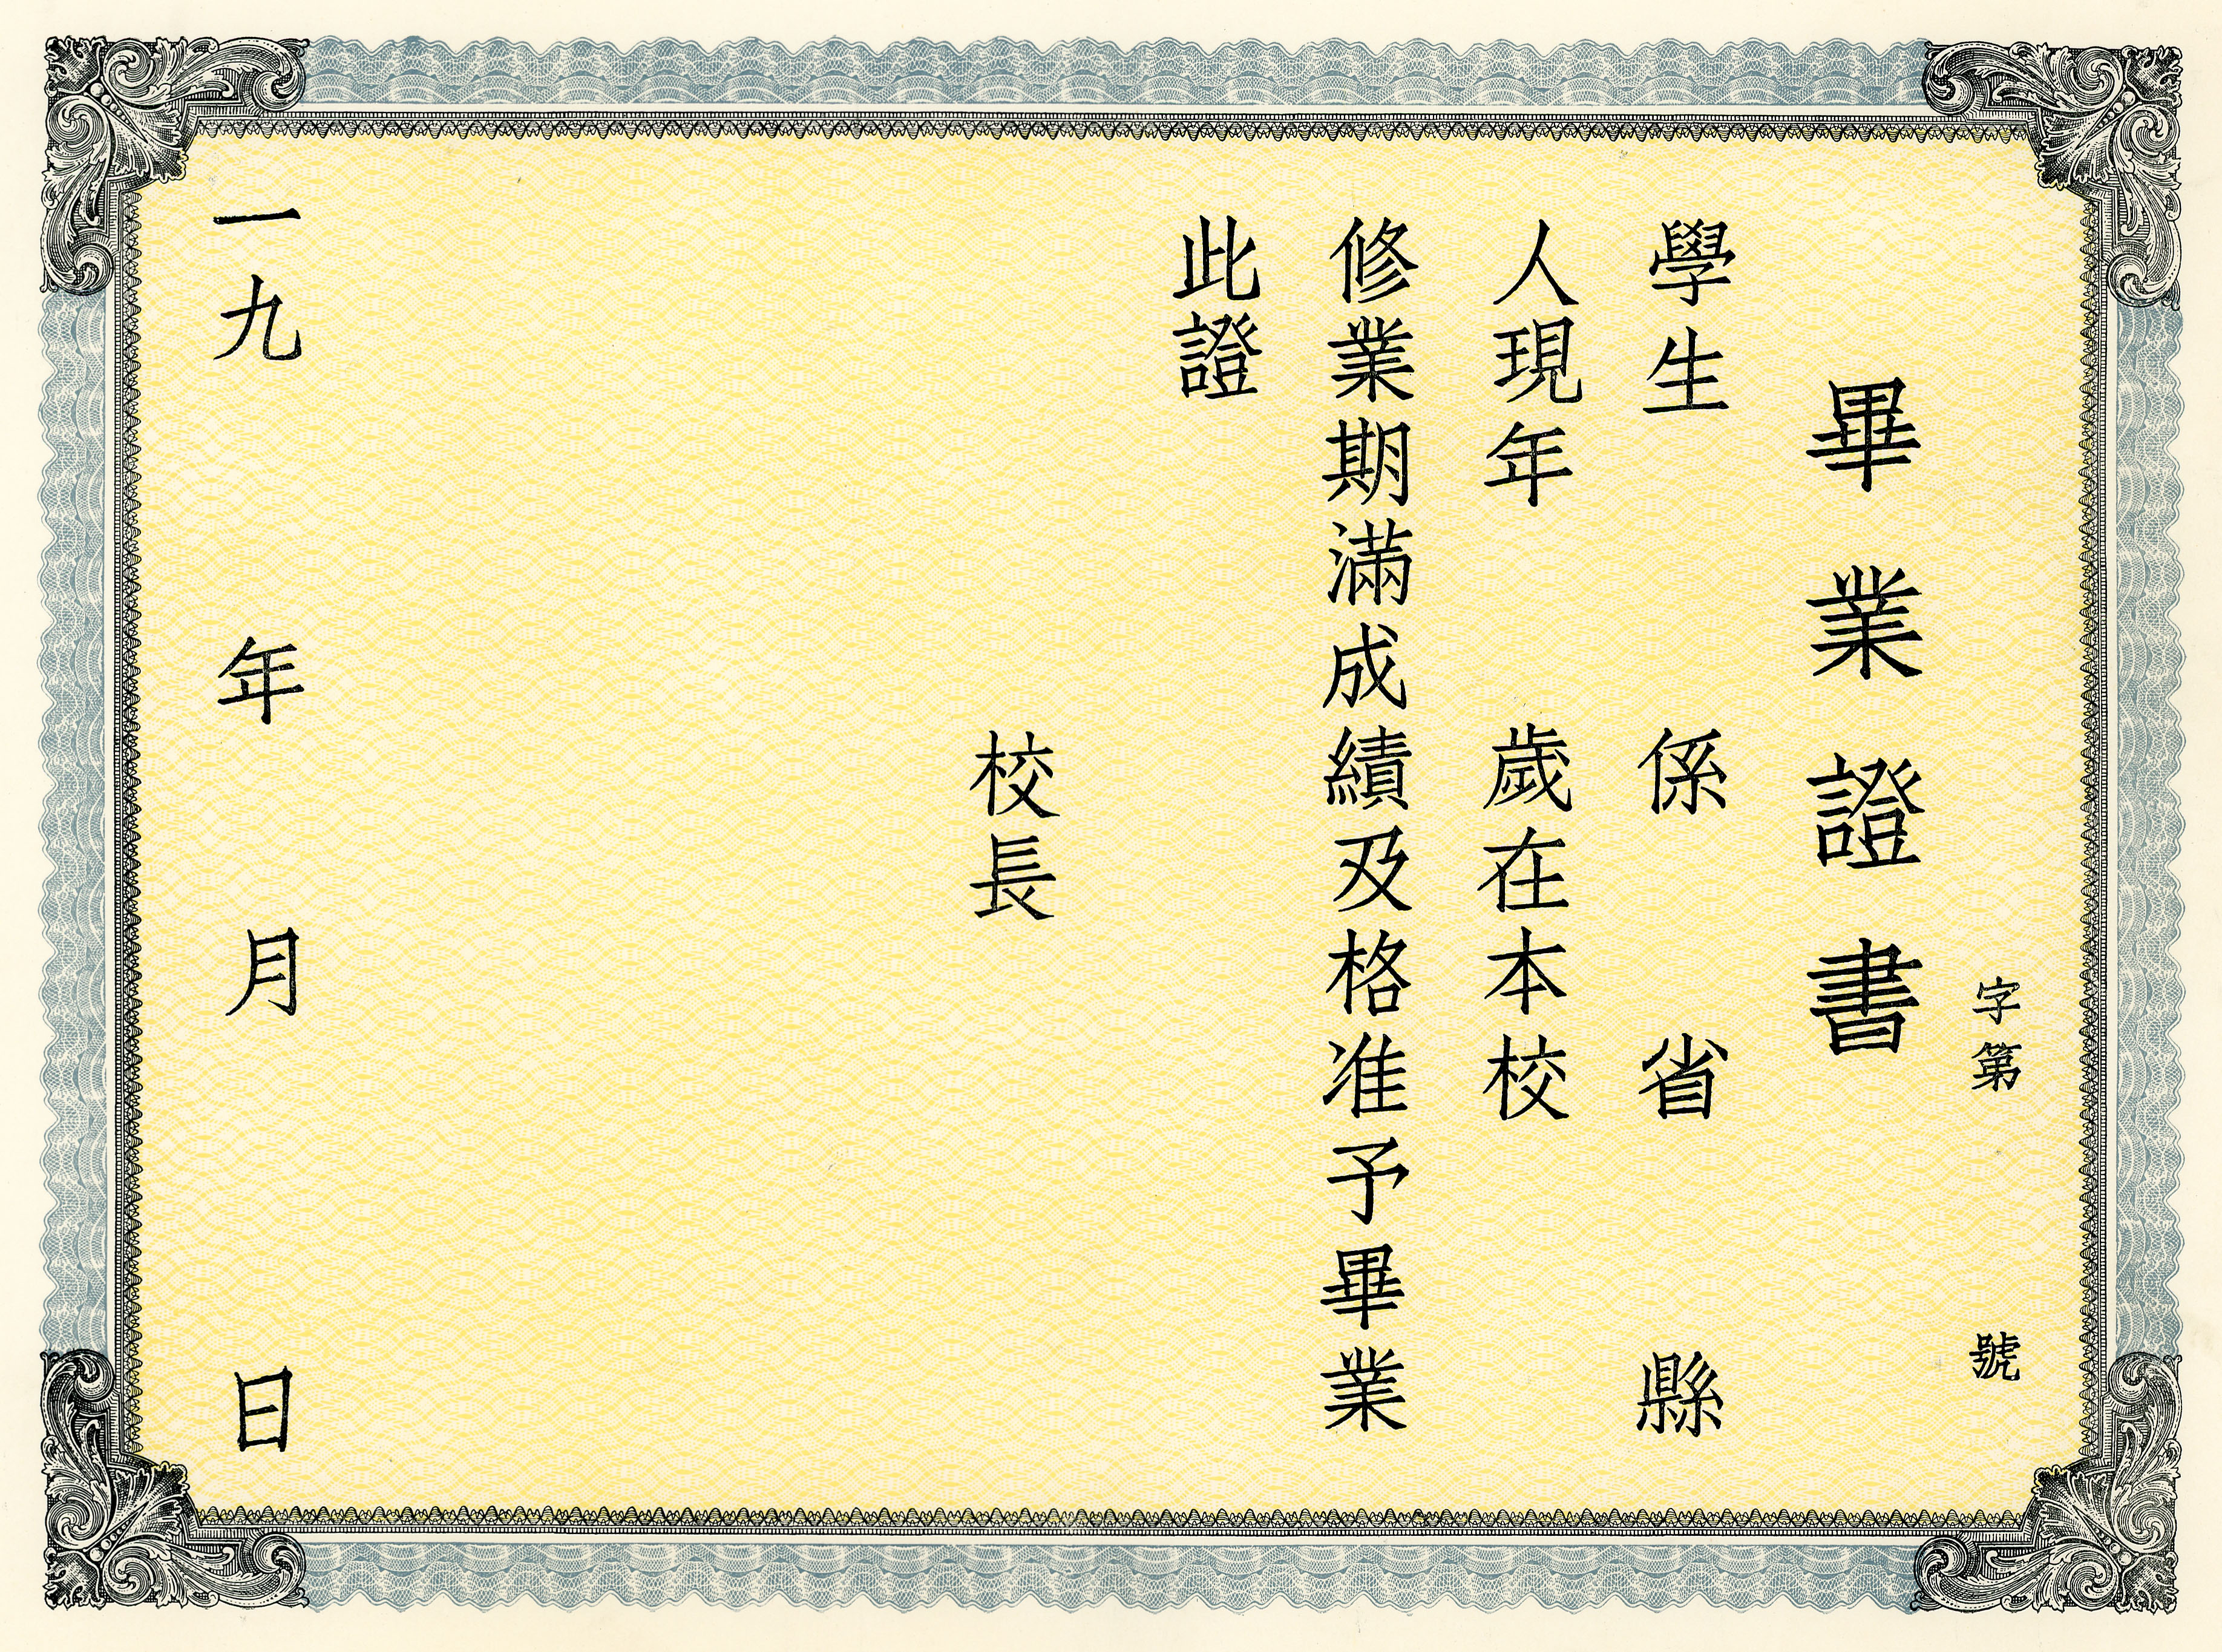 字第 號
畢業證書
學生 係 省 縣
人現年 歲在本校
修業期滿成績及格准予畢業
此證
校長
一九 年 月 日